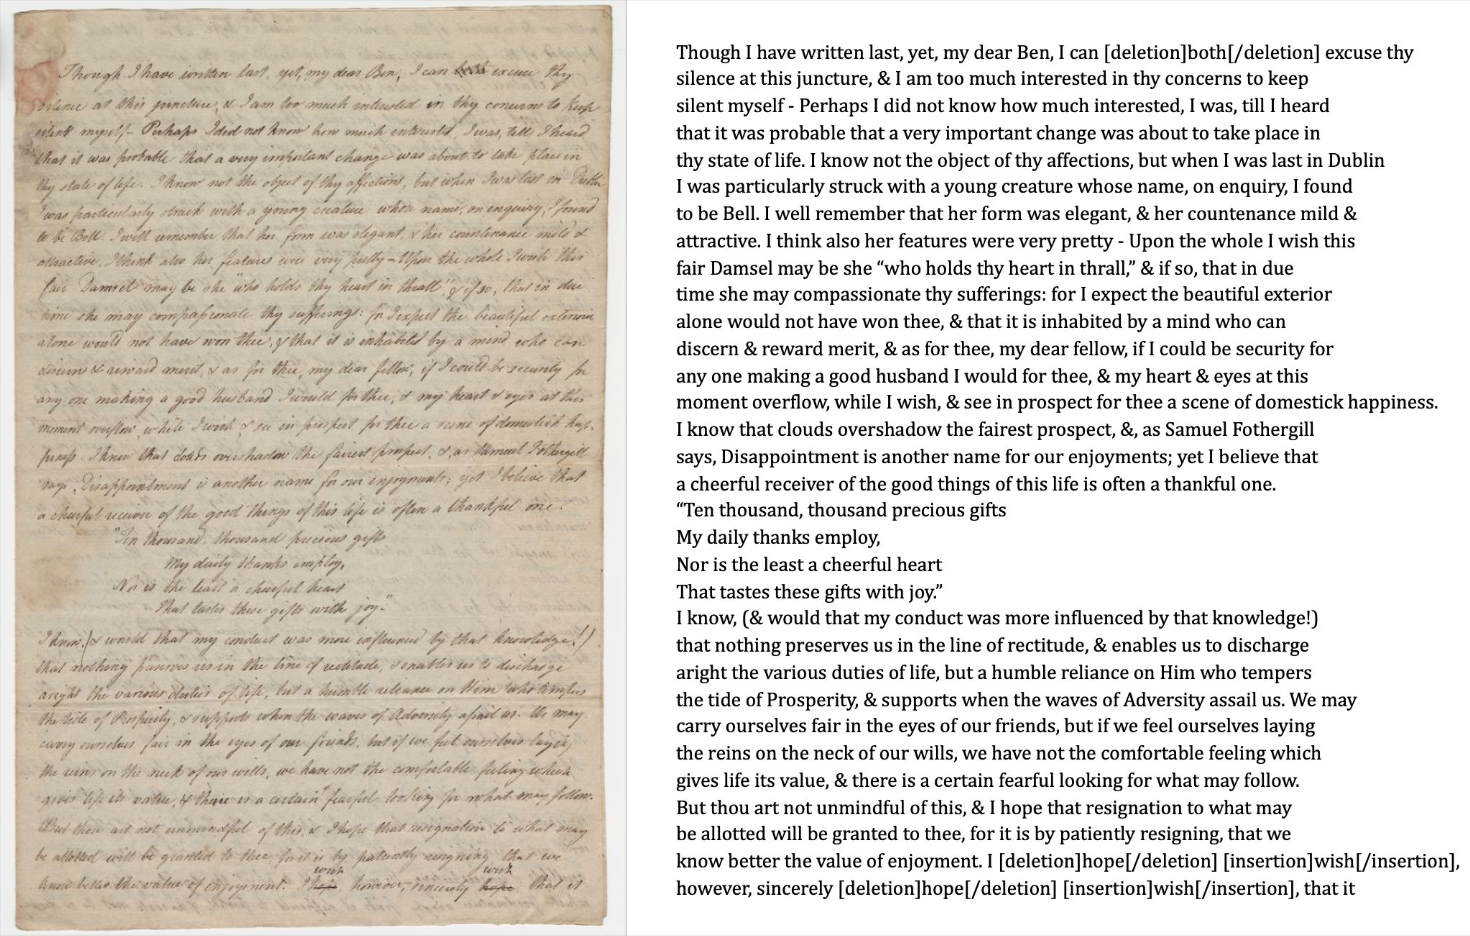 Though I have written last, yet, my dear Ben, I can both excuse thy
silence at this juncture, & I am too much interested in thy concerns to keep
silent myself - Perhaps I did not know how much interested, I was, till I heard
that it was probable that a very important change was about to take place in
thy state of life. I know not the object of thy affections, but when I was last in Dublin
I was particularly struck with a young creature whose name, on enquiry, I found
to be Bell. I well remember that her form was elegant, & her countenance mild &
attractive. I think also her features were very pretty - Upon the whole I wish this
fair Damsel may be she "who holds thy heart in thrall," & if so, that in due
time she may compassionate thy sufferings: for I expect the beautiful exterior
alone would not have won thee, & that it is inhabited by a mind who can
discern & reward merit, & as for thee, my dear fellow, if I could be security for
any one making a good husband I would for thee, & my heart & eyes at this
moment overflow, while I wish, & see in prospect for thee a scene of domestick hap-
piness. I know that clouds overshadow the fairest prospect, &, as Samuel Fothergill
says, Disappointment is another name for our enjoyments; yet I believe that
a cheerful receiver of the good things of this life is often a thankful one.
"Ten thousand, thousand precious gifts
My daily thanks employ,
Nor is the least a cheerful heart
That tastes these gifts with joy."
I know, (& would that my conduct was more influenced by that knowledge!)
that nothing preserves us in the line of rectitude, & enables us to discharge
aright the various duties of life, but a humble reliance on Him who tempers
the tide of Prosperity, & supports when the waves of Adversity assail us. We may
carry ourselves fair in the eyes of our friends, but if we feel ourselves laying
the reins on the neck of our wills, we have not the comfortable feeling which
gives life its value, & there is a certain fearful looking for what may follow.
But thou art not unmindful of this, & I hope that resignation to what may
be allotted will be granted to thee, for it is by patiently resigning, that we
wish wish
know better the value of enjoyment. I hope, however, sincerely hope that it
Though I have written last, yet, my dear Ben, I can [deletion]both[/deletion] excuse thy
silence at this juncture, & I am too much interested in thy concerns to keep
silent myself - Perhaps I did not know how much interested, I was, till I heard
that it was probable that a very important change was about to take place in
thy state of life. I know not the object of thy affections, but when I was last in Dublin
I was particularly struck with a young creature whose name, on enquiry, I found
to be Bell. I well remember that her form was elegant, & her countenance mild &
attractive. I think also her features were very pretty - Upon the whole I wish this
fair Damsel may be she “who holds thy heart in thrall,” & if so, that in due
time she may compassionate thy sufferings: for I expect the beautiful exterior
alone would not have won thee, & that it is inhabited by a mind who can
discern & reward merit, & as for thee, my dear fellow, if I could be security for
any one making a good husband I would for thee, & my heart & eyes at this
moment overflow, while I wish, & see in prospect for thee a scene of domestick happiness.
I know that clouds overshadow the fairest prospect, &, as Samuel Fothergill
says, Disappointment is another name for our enjoyments; yet I believe that
a cheerful receiver of the good things of this life is often a thankful one.
“Ten thousand, thousand precious gifts
My daily thanks employ,
Nor is the least a cheerful heart
That tastes these gifts with joy.”
I know, (& would that my conduct was more influenced by that knowledge!)
that nothing preserves us in the line of rectitude, & enables us to discharge
aright the various duties of life, but a humble reliance on Him who tempers
the tide of Prosperity, & supports when the waves of Adversity assail us. We may
carry ourselves fair in the eyes of our friends, but if we feel ourselves laying
the reins on the neck of our wills, we have not the comfortable feeling which
gives life its value, & there is a certain fearful looking for what may follow.
But thou art not unmindful of this, & I hope that resignation to what may
be allotted will be granted to thee, for it is by patiently resigning, that we
know better the value of enjoyment. I [deletion]hope[/deletion] [insertion]wish[/insertion],
however, sincerely [deletion]hope[/deletion] [insertion]wish[/insertion], that it